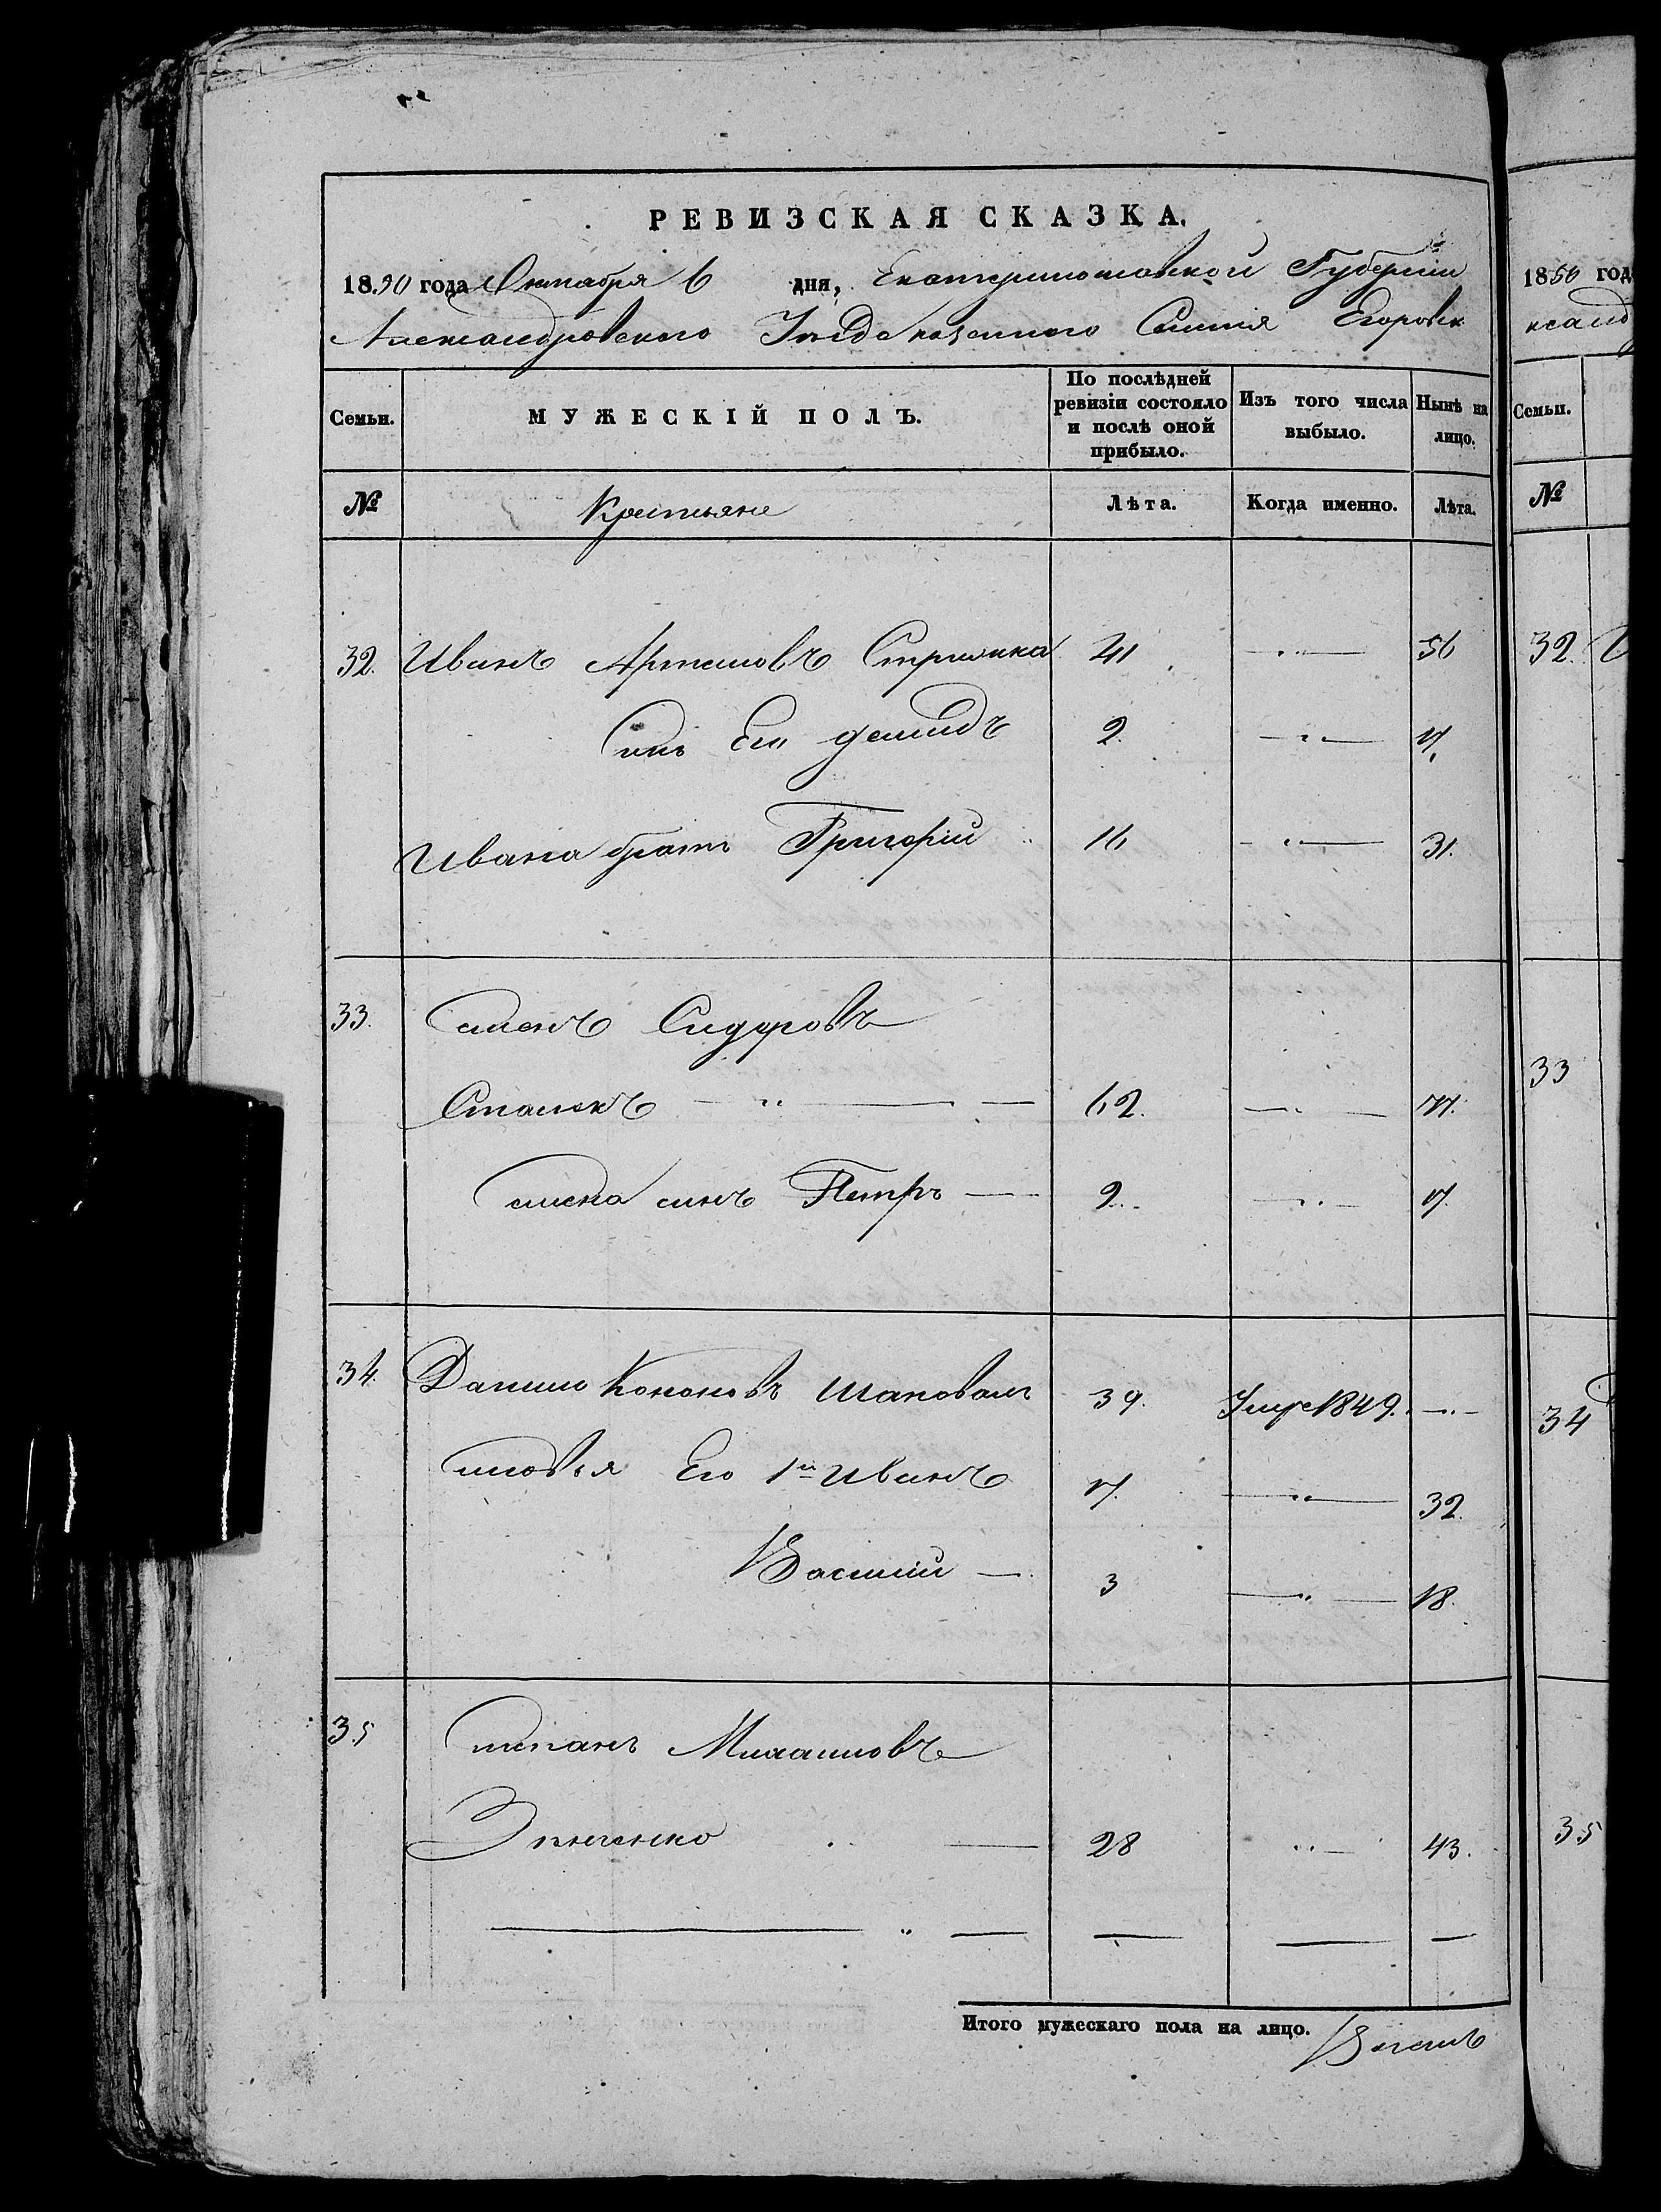 РЕВИЗСКАЯ СКАЗКА.
1850 года Октября 6 дня, Екатеринославской Губернии
Александровского Уезда казенного Селения Егоровк
Семьи. МУЖЕСКІЙ ПОЛЪ. По послѣдней ревизіи состояло и послѣ оной прибыло. Изъ того числа выбыло. Нынѣ на лицо.
№ Крестьяне Лѣта. Когда именно. Лѣта.
32. Иванъ Артемовъ 41 56
Сынъ Его Демидъ 2 17
Ивана братъ Григорій 16 31.
33. Семенъ Сидоровъ
62. 77.
Семена сынъ Петръ 2. 17.
34. Данило Кононовъ Шаповалъ 39. Умре 1849.
сыновья Его 1й Иванъ 17. 32.
Василий 3 18.
35 Степанъ Михайловъ
28 43.
Итого мужескаго пола на лицо. Восемь
1850 год
ксанд
Семьи.
№
32.
33
34
35